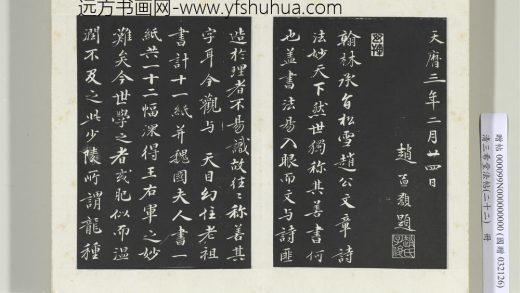 远方书画网-www.yfshuhua.com
天曆三年二月廿四日
趙孟題
翰林承旨松雪趙公文章詩
法妙天下然世獨稱其善書何
也蓋書法易入眼而文与詩匪
造於理者不易識故往々稱善其
字耳今觀与天目幻住老祖
書計十一紙并魏國夫人書一
紙共一十二幅深得王右軍之妙
難矣今世學之者或肥似而温
潤不及之此少陵所謂龍種
贈帖 000099N000000000 (國贈 032126)
清三希堂法帖(二十二) 冊